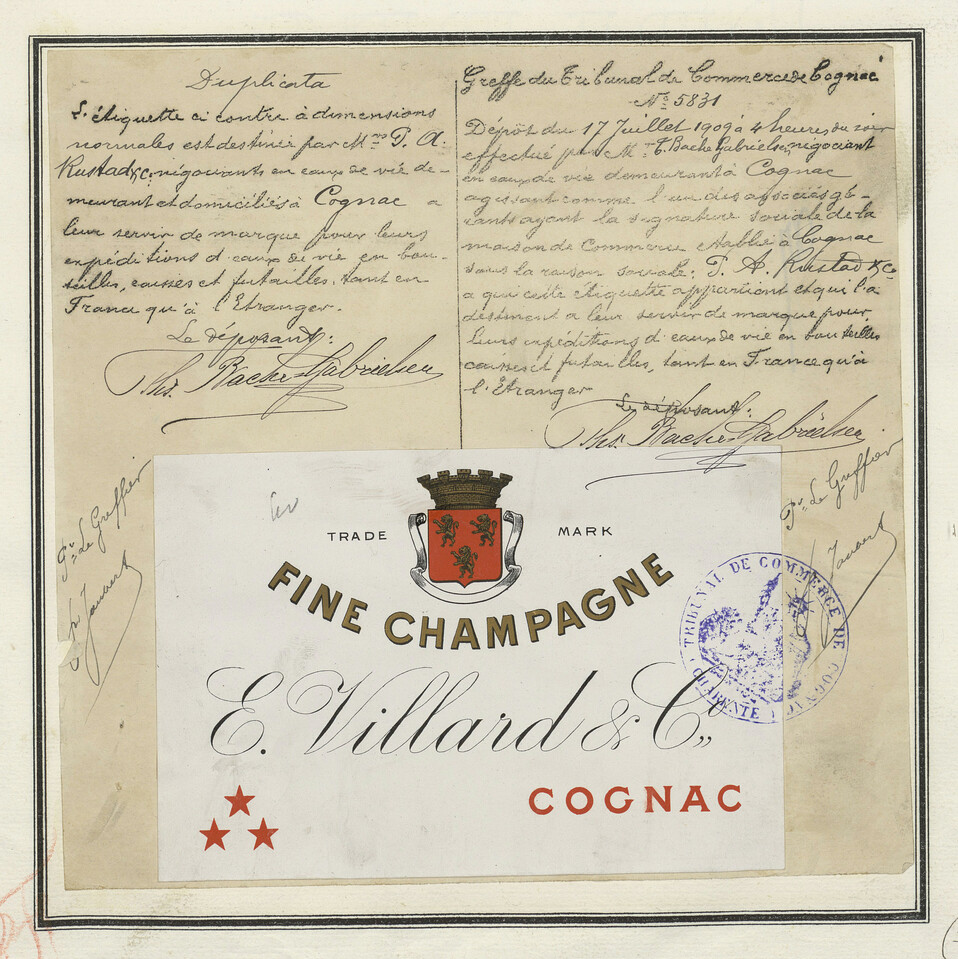 Duplicata
L'étiquette ci contre à dimensions
normales est destinée par Mrs P. A.
Rustad & Co négociants en eaux de vie de-
meurant et domiciliés à Cognac a
leur servir de marque pour leurs
expéditions d'eaux de vie en bou-
teilles, caisses et futailles, tant en
France qu'à l'Etranger.
Le déposant:
Ths. Bache-Gabrielsen
Pr. Le Greffier
Greffe du Tribunal de Commerce de Cognac
No 5831
Dépôt du 17 Juillet 1909 à 4 heures du soir
effectué par Mr T. Bache Gabrielsen, négociant
en eaux de vie demeurant à Cognac
agissant comme l'un des associés gé-
rants ayant la signature sociale de la
maison de Commerce établie à Cognac
sous la raison sociale: P. A. Rustad & Co
a qui cette étiquette appartient et qui l'a
destinent a leur servir de marque pour
leurs expéditions d'eaux de vie en bouteilles
caisses et futailles, tant en France qu'à
l'Etranger
Le déposant:
Ths. Bache-Gabrielsen
Pr. Le Greffier
TRADE MARK
FINE CHAMPAGNE
E. Villard & Co,,
COGNAC
TRIBUNAL DE COMMERCE DE COGNAC
CHARENTE